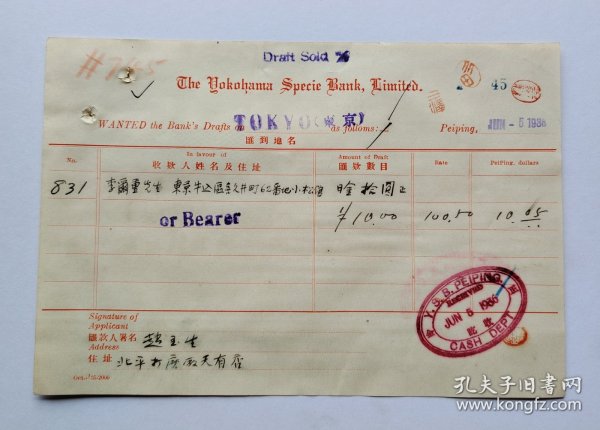 Draft Sold
#745
The Yokohama Specie Bank, Limited.
45
WANTED the Bank's Drafts on TOKYO (東京) as follows: Peiping, JUN - 5 1936
匯到地名
No. In favour of Amount of Draft Rate Peiping dollars
收款人姓名及住址 匯款數目
831 李爾重先生 東京牛込區 町62番地小松 日金拾圓正
¥10.00 100.50 10.05
or Bearer
Signature of
Applicant
匯款人署名 趙玉生
Address
住址 北平打磨廠天有店
Y. S. B. PEIPING
RECEIVED
JUN 5 1936
收
CASH DEPT
孔夫子旧书网
www.kongfz.com